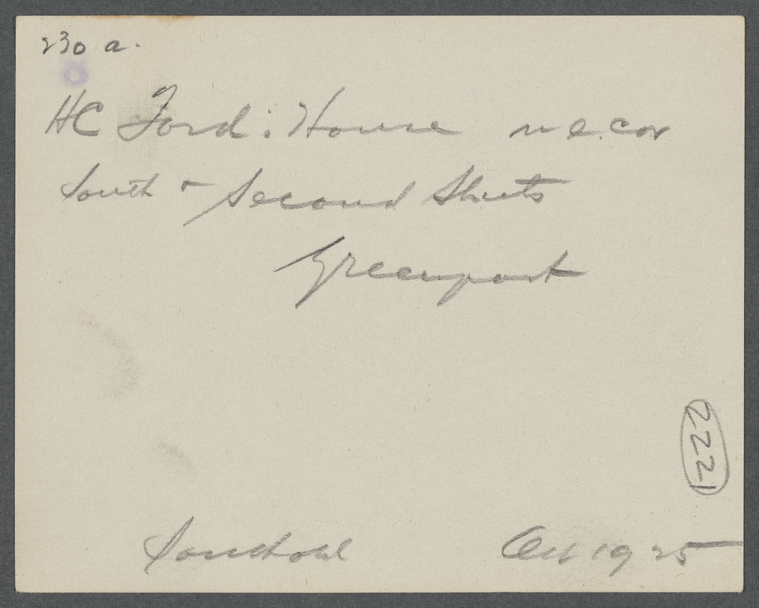 230 a.
HC Ford: House n e. cor
South + Second Streets
Greenport
2221
Southold Oct 1925